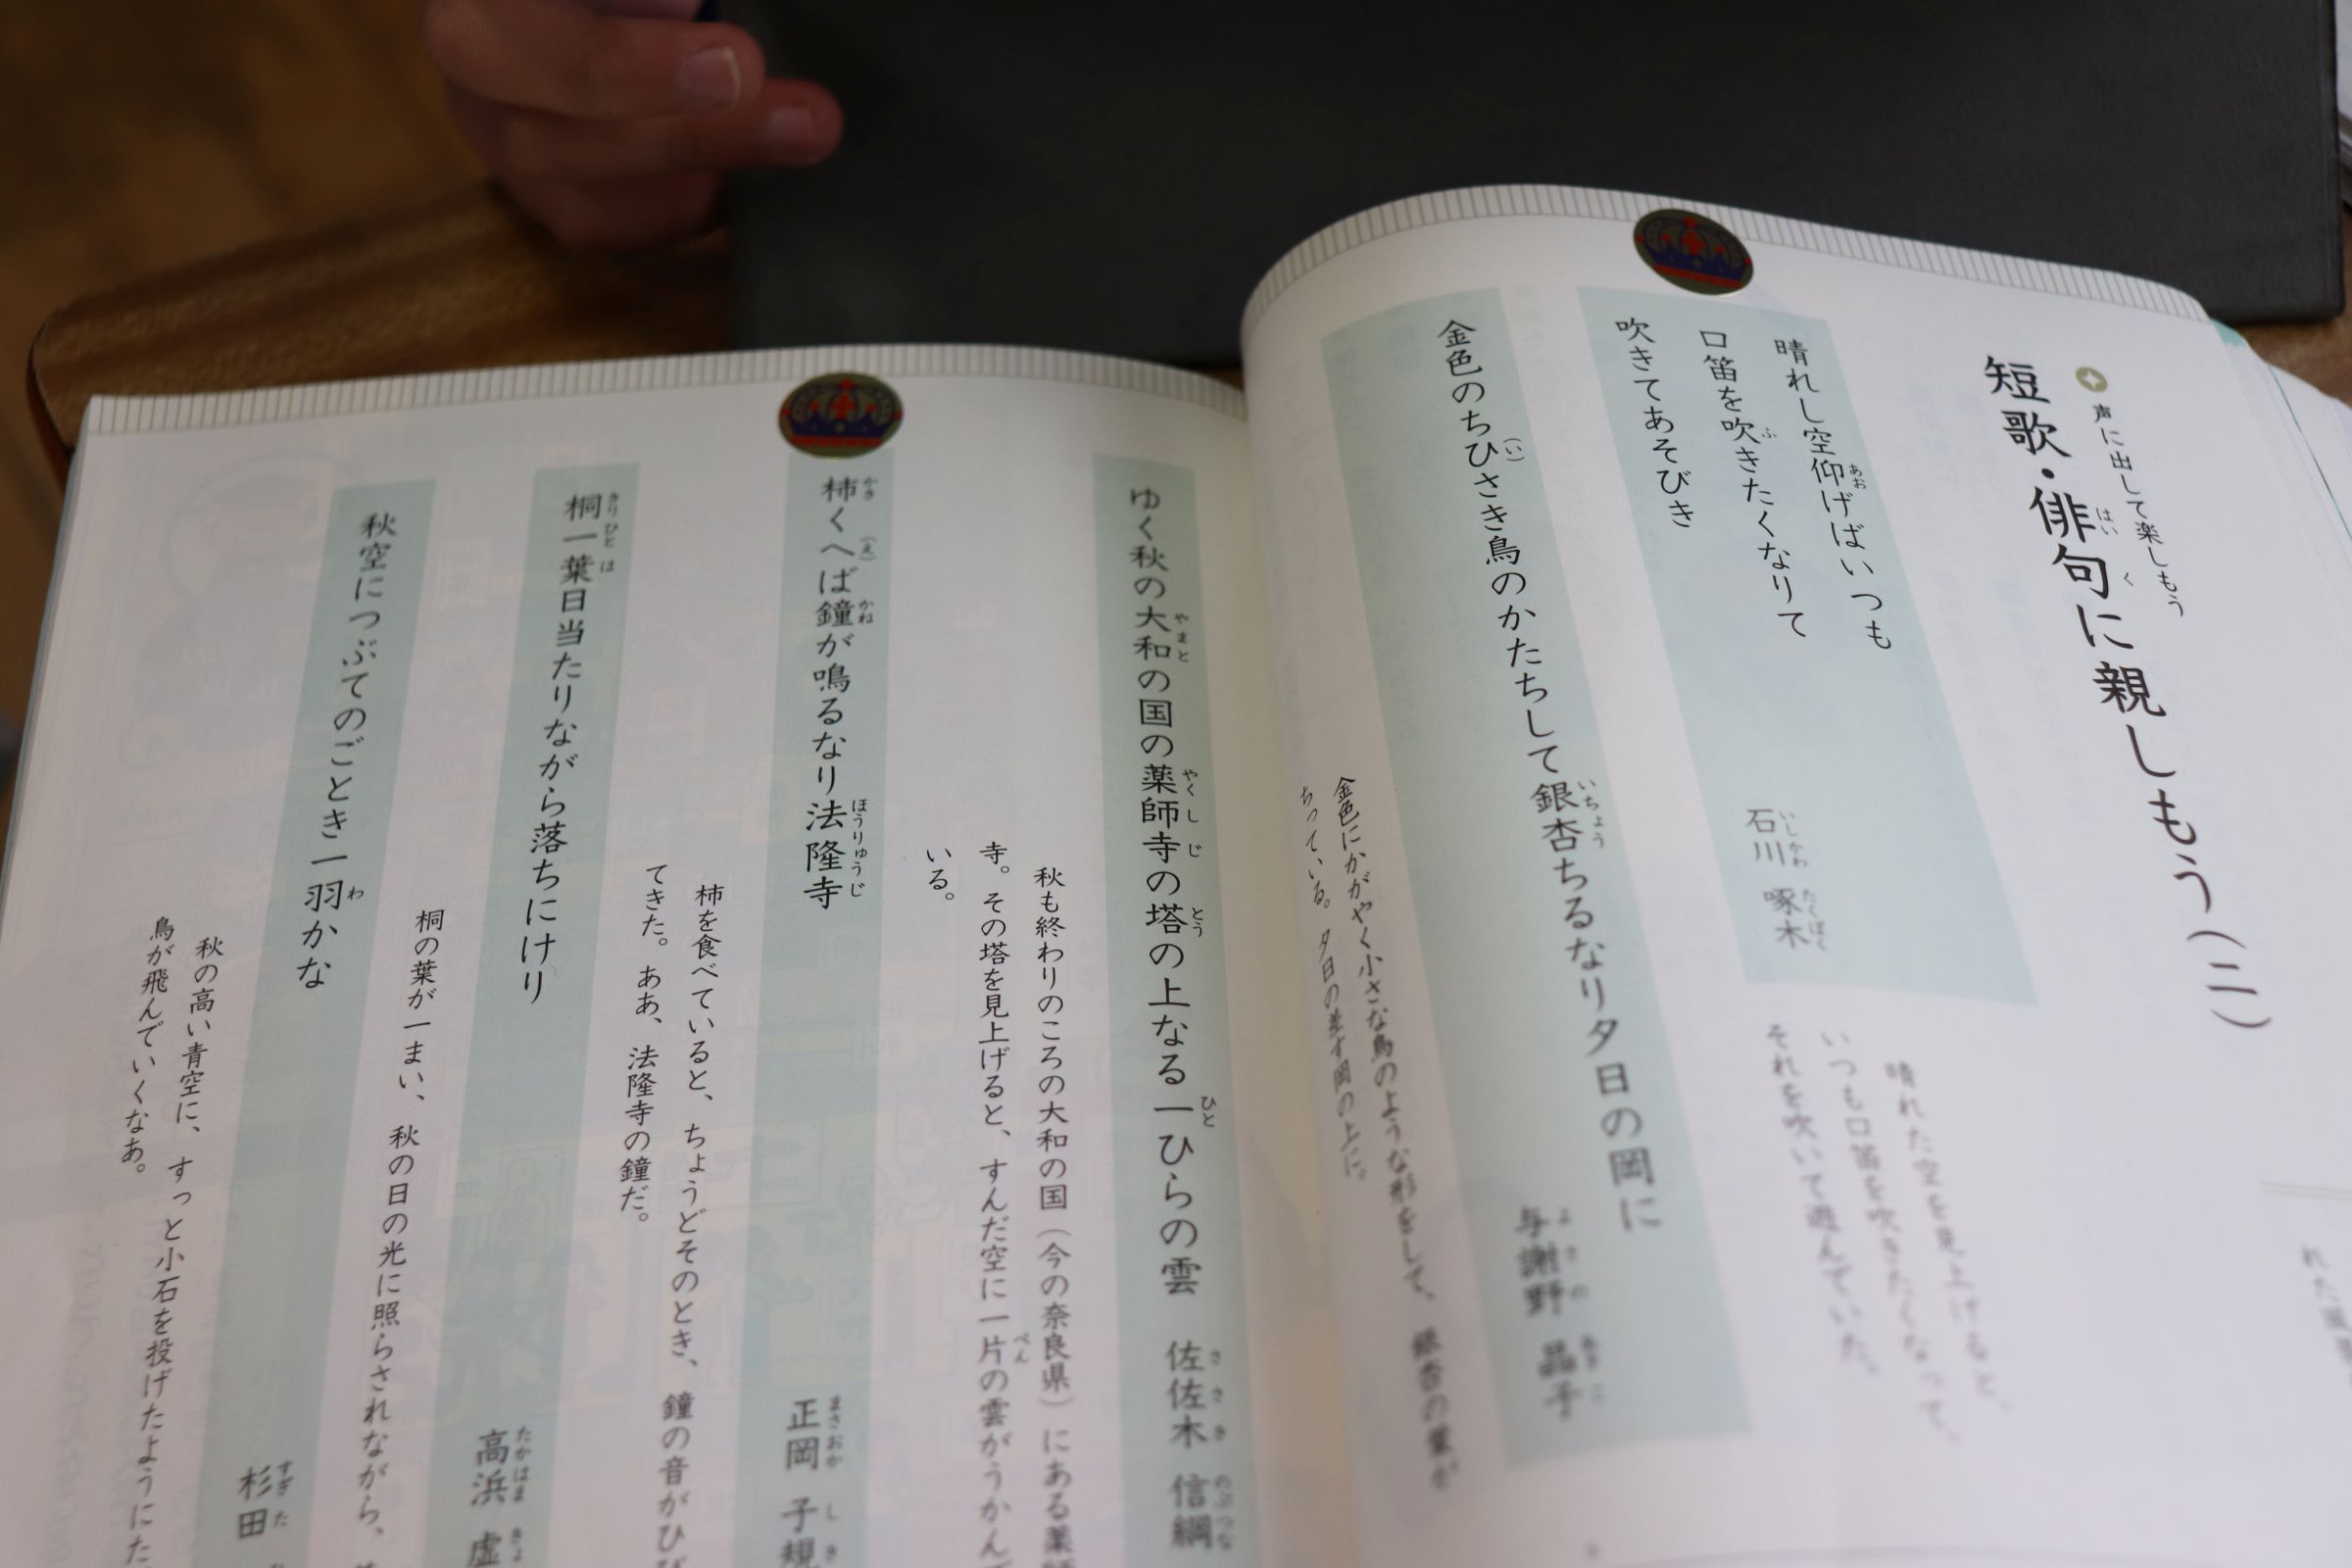 声に出して楽しもう
短歌・俳句に親しもう(二)
晴れし空仰げばいつも
口笛を吹きたくなりて
吹きてあそびき
石川 啄木
晴れた空を見上げると、
いつも口笛を吹きたくなって、
それを吹いて遊んでいた。
金色のちひさき鳥のかたちして銀杏ちるなり夕日の岡に
与謝野 晶子
金色にかがやく小さな鳥のような形をして、銀杏の葉が
ちっている。夕日の差す岡の上に。
ゆく秋の大和の国の薬師寺の塔の上なる一ひらの雲 佐佐木 信綱
秋も終わりのころの大和の国(今の奈良県)にある薬師
寺。その塔を見上げると、すんだ空に一片の雲がうかんで
いる。
柿くへば鐘が鳴るなり法隆寺
正岡 子規
柿を食べていると、ちょうどそのとき、鐘の音がひび
てきた。ああ、法隆寺の鐘だ。
桐一葉日当たりながら落ちにけり
高浜 虚
桐の葉が一まい、秋の日の光に照らされながら、
秋空につぶてのごとき一羽かな
杉田
秋の高い青空に、すっと小石を投げたようにた
鳥が飛んでいくなあ。